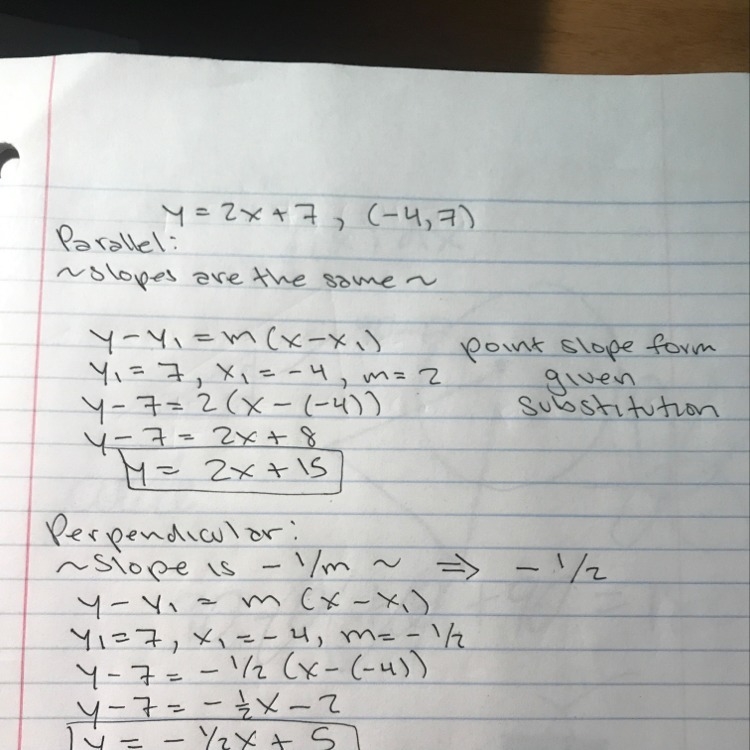 y = 2x + 7 , (-4, 7)
Parallel:
~slopes are the same ~
y - y₁ = m (x - x₁) point slope form
y₁ = 7, x₁ = -4, m = 2 given
y - 7 = 2 (x - (-4)) substitution
y - 7 = 2x + 8
y = 2x + 15
Perpendicular:
~slope is - 1/m ~ ⇒ - 1/2
y - y₁ = m (x - x₁)
y₁ = 7, x₁ = -4, m = - 1/2
y - 7 = - 1/2 (x - (-4))
y - 7 = - ½x - 2
y = - 1/2x + 5